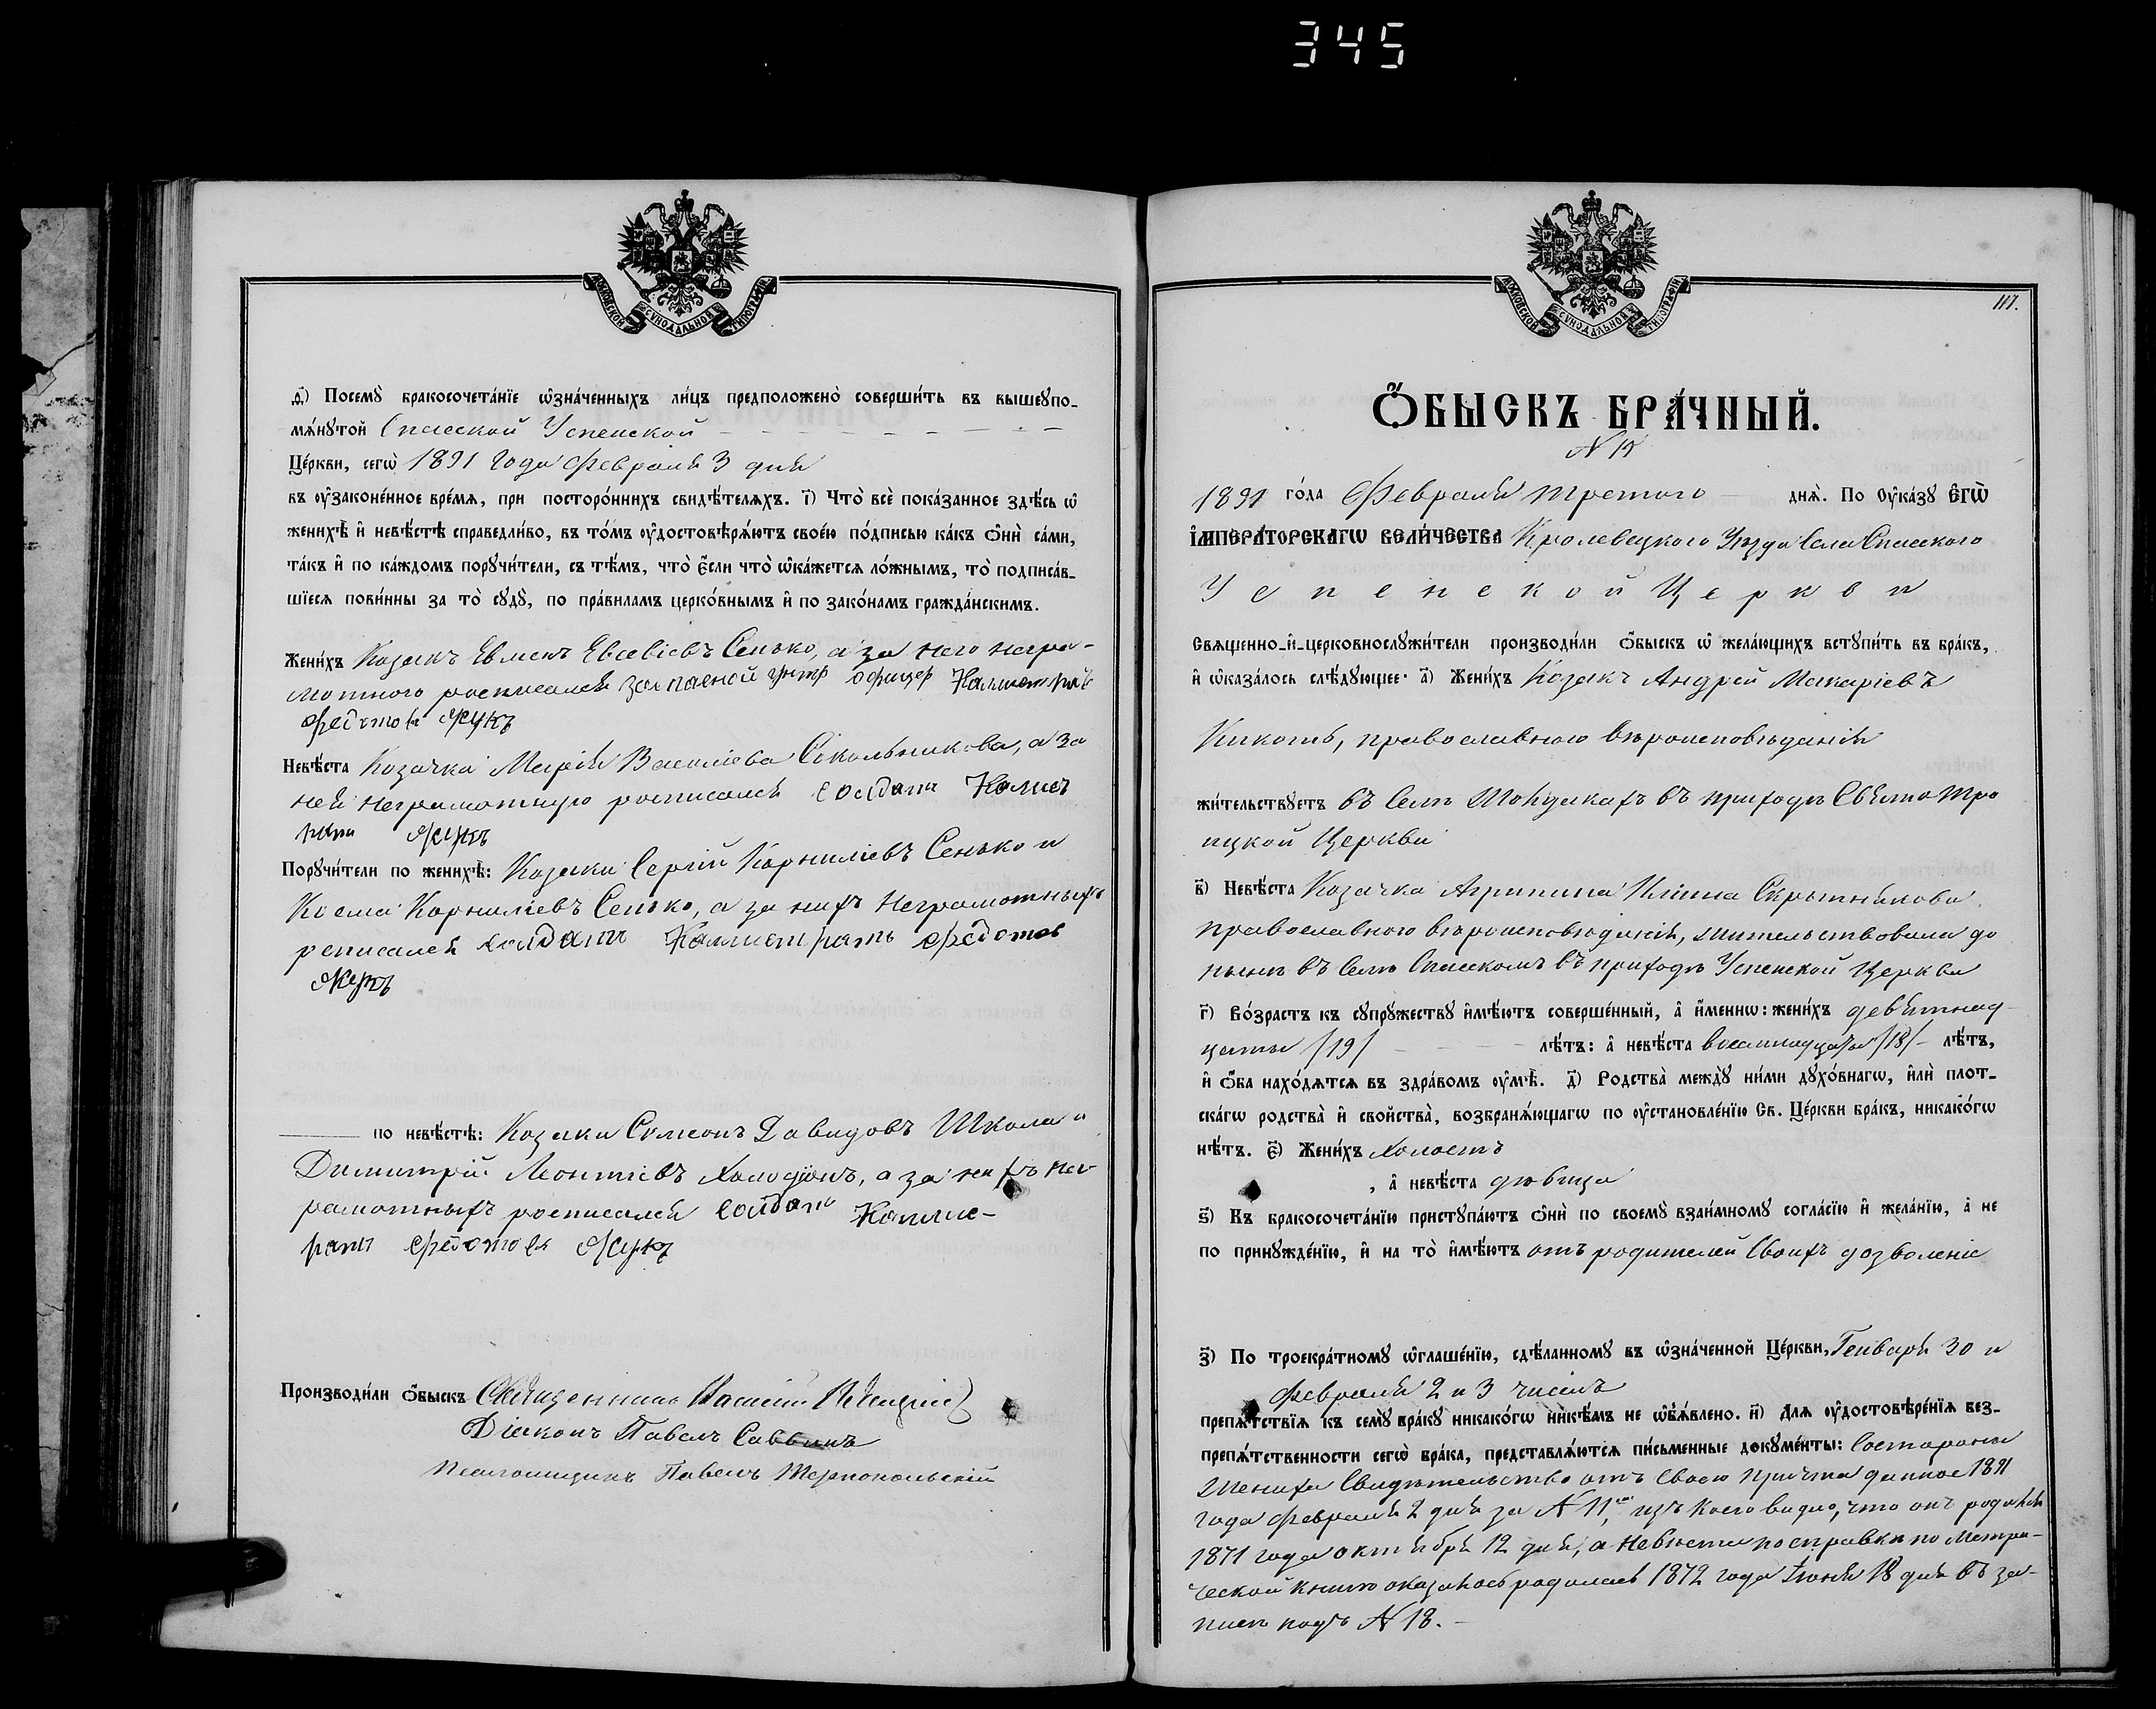 345
МОСКОВСКОЙ СѴНОДАЛЬНОЙ ТИПОГРАФІИ
Посемꙋ̀ бракосочета́нїе ѡ҆зна́ченныхъ ли́цъ предположено̀ соверши́ть въ вышеꙋпо-
мѧ́нꙋтой Спасской Успенской
Це́ркви, сегѡ̀ 1891 года Февраля 3 дня
въ ᲂу҆законе́нное вре́мѧ, при посторо́ннихъ свидѣ́телѧхъ. і҃) Что̀ всѐ пока́занное здѣ́сь ѡ҆
женихѣ̀ и҆ невѣ́стѣ справедли́во, въ то́мъ ᲂу҆достовѣрѧ́ютъ свое́ю по́дписью ка́къ ѻ҆нѝ са́ми,
та́къ и҆ по ка́ждомъ порꙋчи́тели, съ тѣ́мъ, что̀ є҆́сли что̀ ѡ҆ка́жетсѧ ло́жнымъ, то̀ подписа́в-
шїесѧ пови́нны за то̀ сꙋдꙋ̀, по пра́виламъ церко́внымъ и҆ по зако́намъ гражда́нскимъ.
Жени́хъ Козакъ Евменъ Евсевіевъ Сенько, а за него негра-
мотного росписался запасной унтр офицер Каллистратъ
Федотов Жукъ
Невѣ́ста Козачка Марія Василіева Сокольникова, а за
ней неграмотную росписался солдатъ Калис
трат Жукъ
Порꙋчи́тели по женихѣ̀: Козаки Сергій Корниліевъ Сенько и
Косма Корниліевъ Сенько, а за нихъ неграмотныхъ
росписался солдатъ Каллистратъ Федотов
Жукъ
по невѣ́стѣ: Козаки Симеонъ Давидовъ Школа и
Димитрій Леонтіевъ Холодюнъ, а за нихъ нег
рамотныхъ росписался солдатъ Каллис-
ратъ Федотовъ Жукъ
Производи́ли ѻ҆́быскъ Священникъ Василій
Діаконъ Павелъ Саввинъ
Псаломщикъ Павелъ Тернопольскій
МОСКОВСКОЙ СѴНОДАЛЬНОЙ ТИПОГРАФІИ
117.
Ѻ҆́БЫСКЪ БРА́ЧНЫЙ.
N 15
1891 го́да Февраля третого днѧ̀. По Оу҆ка́зꙋ Є҆ГѠ̀
І҆МПЕРА́ТОРСКАГѠ ВЕЛИ́ЧЕСТВА Кролевецкого Уѣзда Села Спасского
Успенской Церкви
Свѧщенно-и҆-церковнослꙋжи́тели производи́ли ѻ҆́быскъ ѡ҆ жела́ющихъ встꙋпи́ть въ бра́къ,
и҆ ѡ҆каза́лось слѣ́дꙋющее: а҃) Жени́хъ Козакъ Андрей Макаріевъ
Кикоть, православного вѣроисповѣданія
жи́тельствꙋетъ въ Селѣ Мокушкахъ въ приходѣ Свято Тро
ицкой Церкви
в҃) Невѣ́ста Козачка Агрипина Иліина Скрытникова
православного вѣроисповѣданія, жительствовала до
нынѣ въ Селѣ Спасскомъ въ приходѣ Успенской Церкви
г҃) Во́зрастъ къ сꙋпрꙋ́жествꙋ и҆мѣ́ютъ соверше́нный, а҆ и҆́меннѡ: жени́хъ девятнад-
цать /19/ лѣ́тъ: а҆ невѣ́ста восемнадцать /18/ лѣ́тъ,
и҆ ѻ҆́ба нахо́дѧтсѧ въ здра́вомъ ᲂу҆мѣ̀. д҃) Родства̀ междꙋ̀ ни́ми дꙋхо́внагѡ, и҆лѝ плот-
ска́гѡ родства̀ и҆ свойства̀, возбранѧ́ющагѡ по ᲂу҆становле́нїю Св. Це́ркви бра́къ, никако́гѡ
нѣ́тъ. є҃) Жени́хъ холостъ
, а҆ невѣ́ста дѣвица
ѕ҃) Къ бракосочета́нїю пристꙋпа́ютъ ѻ҆нѝ по своемꙋ̀ взаи́мномꙋ согла́сїю и҆ жела́нїю, а҆ не
по принꙋжде́нїю, и҆ на то̀ и҆мѣ́ютъ отъ родителей Своихъ дозволеніе
з҃) По троекра́тномꙋ ѡ҆глаше́нїю, сдѣ́ланномꙋ въ ѡ҆зна́ченной Це́ркви, Генваря 30 и
Февраля 2 и 3 числъ
препѧ́тствїѧ къ семꙋ̀ бра́кꙋ никако́гѡ никѣ́мъ не ѡ҆б̾ѧ́влено. и҃) Длѧ ᲂу҆достовѣре́нїѧ без-
препѧ́тственности сегѡ̀ бра́ка, представлѧ́ютсѧ пи́сьменные докꙋме́нты: Состороны
Жениха Свидѣтельство отъ Своего Причта данное 1891
года Февраля 2 дня за N 11, изъ коего видно, что онъ родился
1871 года октября 12 дня, а Невѣсты по справкѣ по Метри-
ческой книгѣ оказалось родилась 1872 года Іюня 18 дня въ за-
писи подъ N 18.